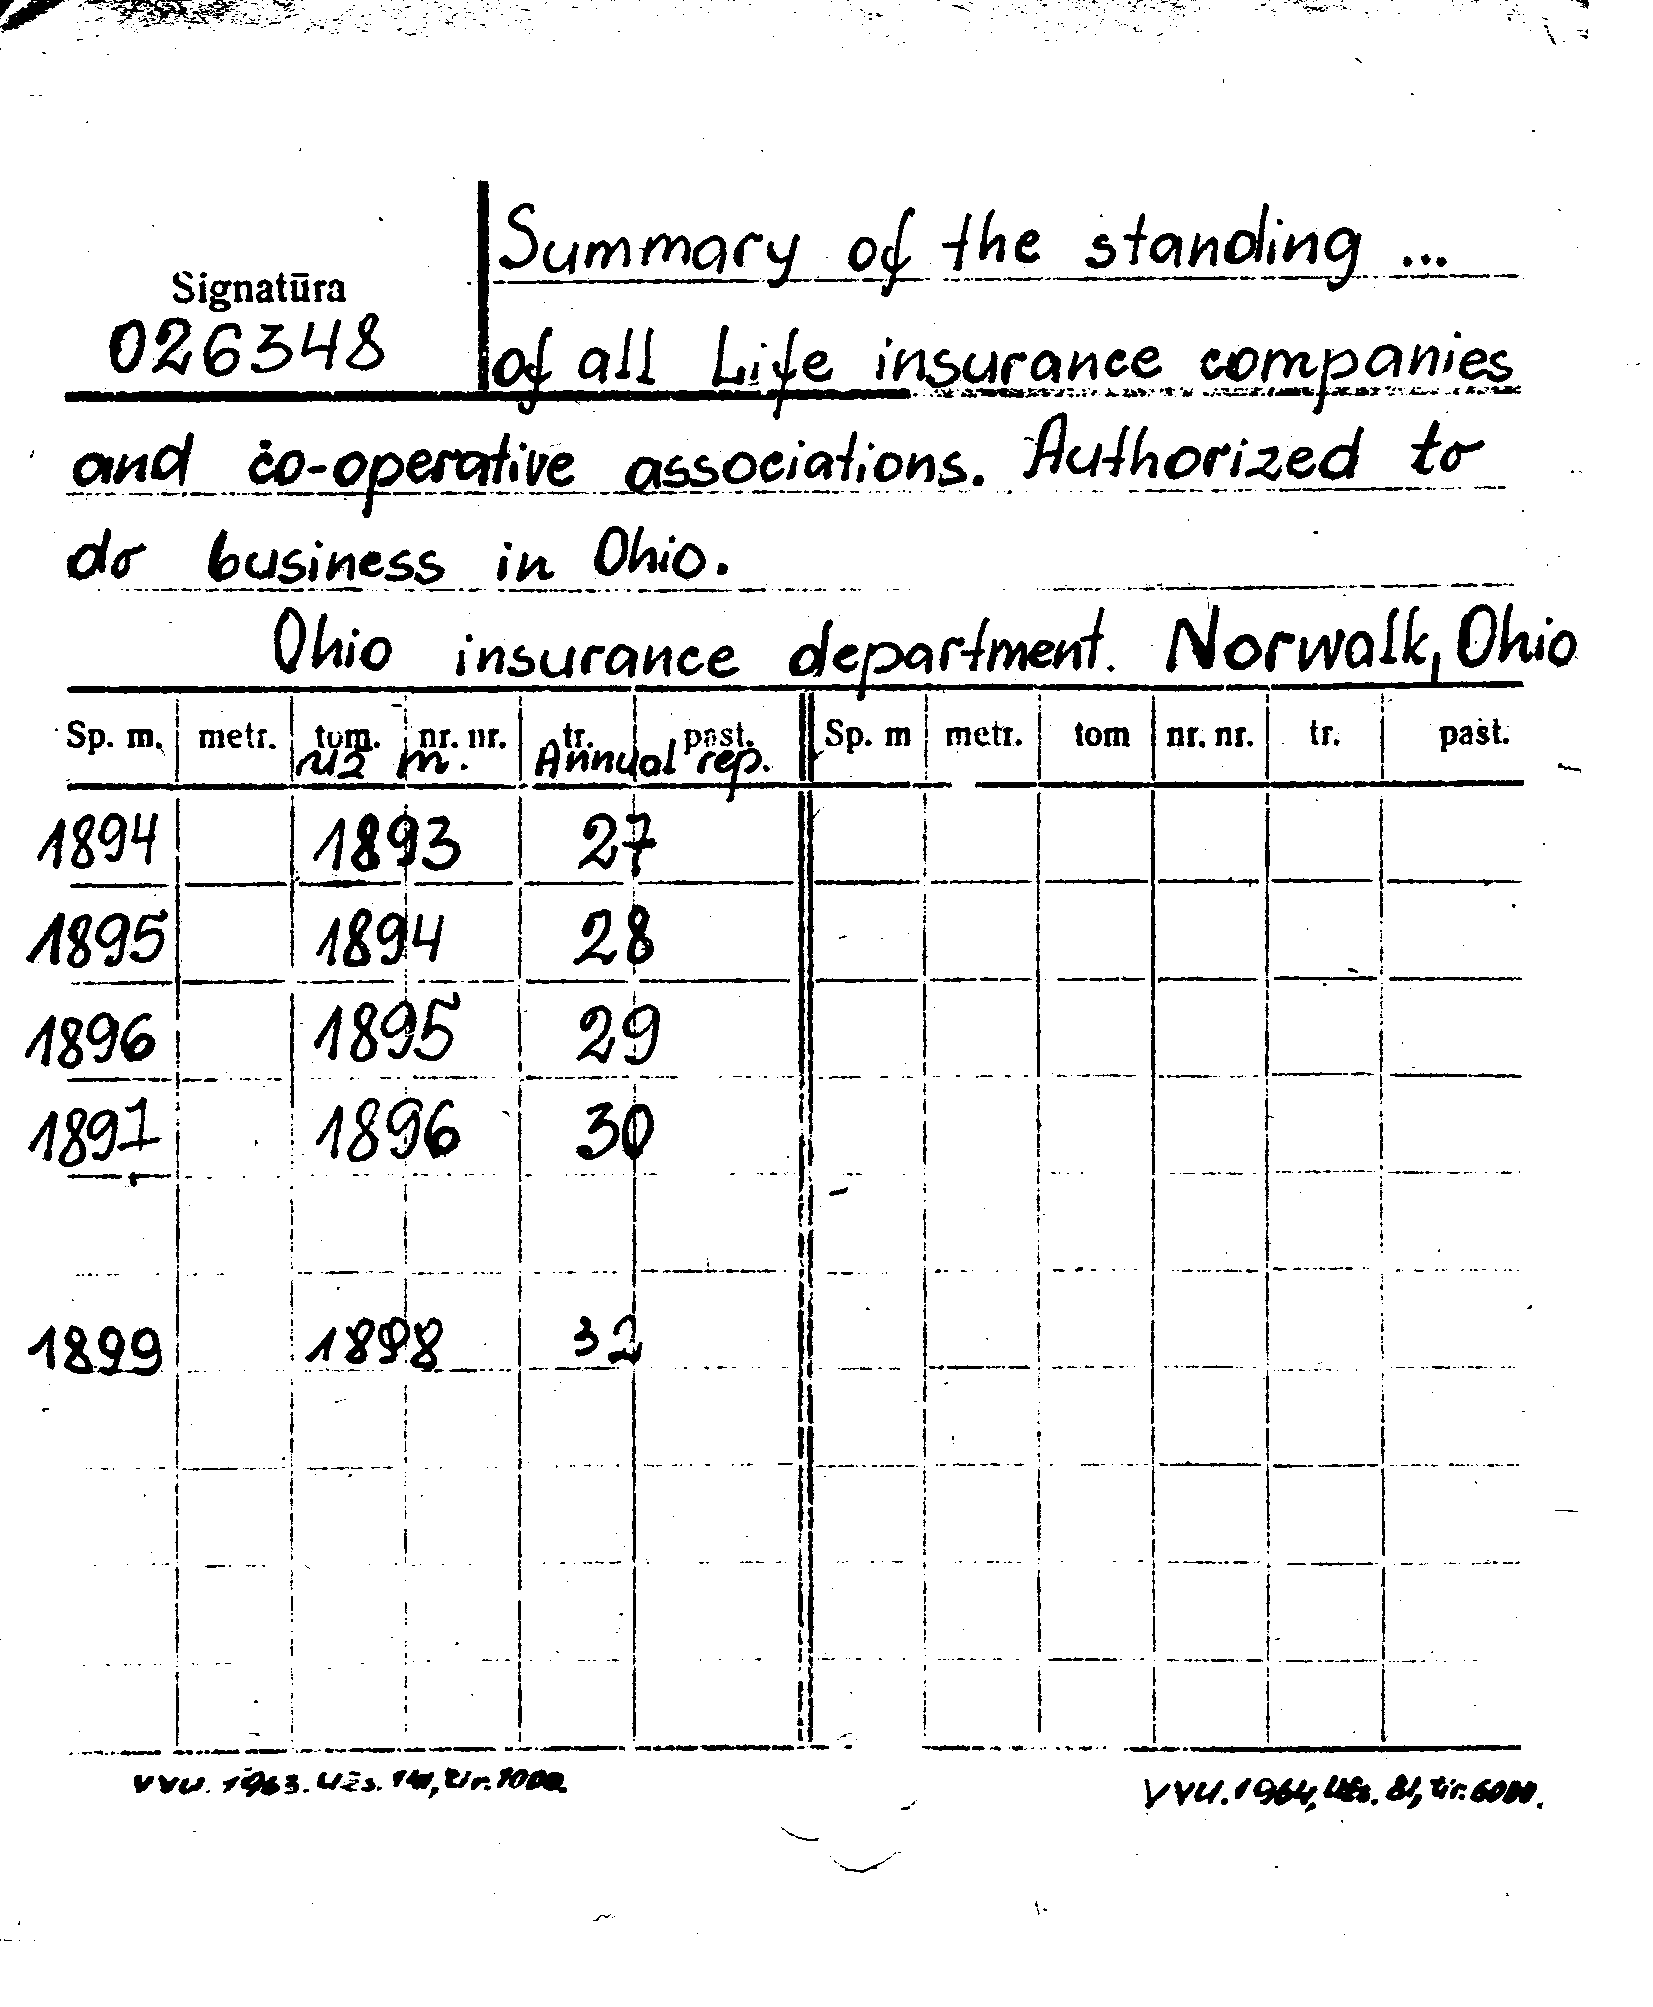 Summary of the standing ...
Signatūra
026348
of all Life insurance companies
and co-operative associations. Authorized to
do business in Ohio.
Ohio insurance department. Norwalk, Ohio
Sp. m. metr. tom. nr. nr. tr. past. Sp. m metr. tom nr. nr. tr. past.
už m. Annual rep.
1894 1893 27
1895 1894 28
1896 1895 29
1897 1896 30
1899 1898 32
VVU. 1963. Užs. 141, tir. 1000. VVU. 1964, Užs. 81, tir. 6000.